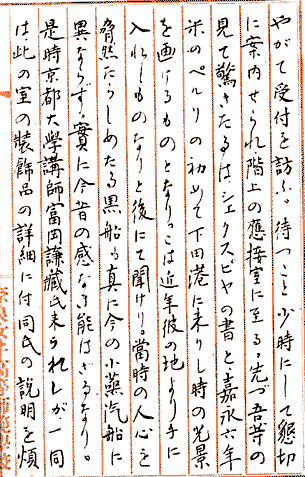 やがて受付を訪ふ。待つこと少時にして懇切
に案内せられ階上の應接室に至る。先づ吾等の
見て驚きたるはシェクスピヤの書と嘉永六年
米のペルリの初めて下田港に来りし時の光景
を画けるものとなり。こは近年彼の地より手に
入れしものなりと後にて聞けり。當時の人心を
脅然たらしめたる黒船も真に今の小蒸汽船に
異ならず。實に今昔の感なき能はざるなり。
是時京都大學講師富岡謙藏氏来られしが一同
は此の室の装飾品の詳細に付同氏の説明を煩